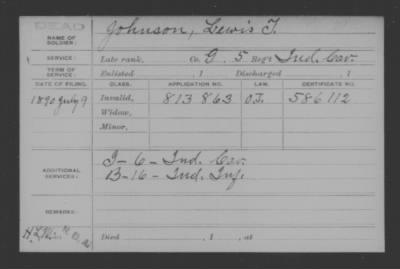 DEAD
NAME OF SOLDIER: Johnson, Lewis T.
SERVICE: Late rank, Co. G. 5 Reg't Ind. Cav.
TERM OF SERVICE: Enlisted , 1 Discharged , 1
DATE OF FILING. CLASS. APPLICATION NO. LAW. CERTIFICATE NO.
1890 July 9 Invalid, 813 863 586 112
Widow,
Minor,
ADDITIONAL SERVICES: I-6-Ind. Cav.
B-16-Ind. Inf.
REMARKS:
Died , 1 , at